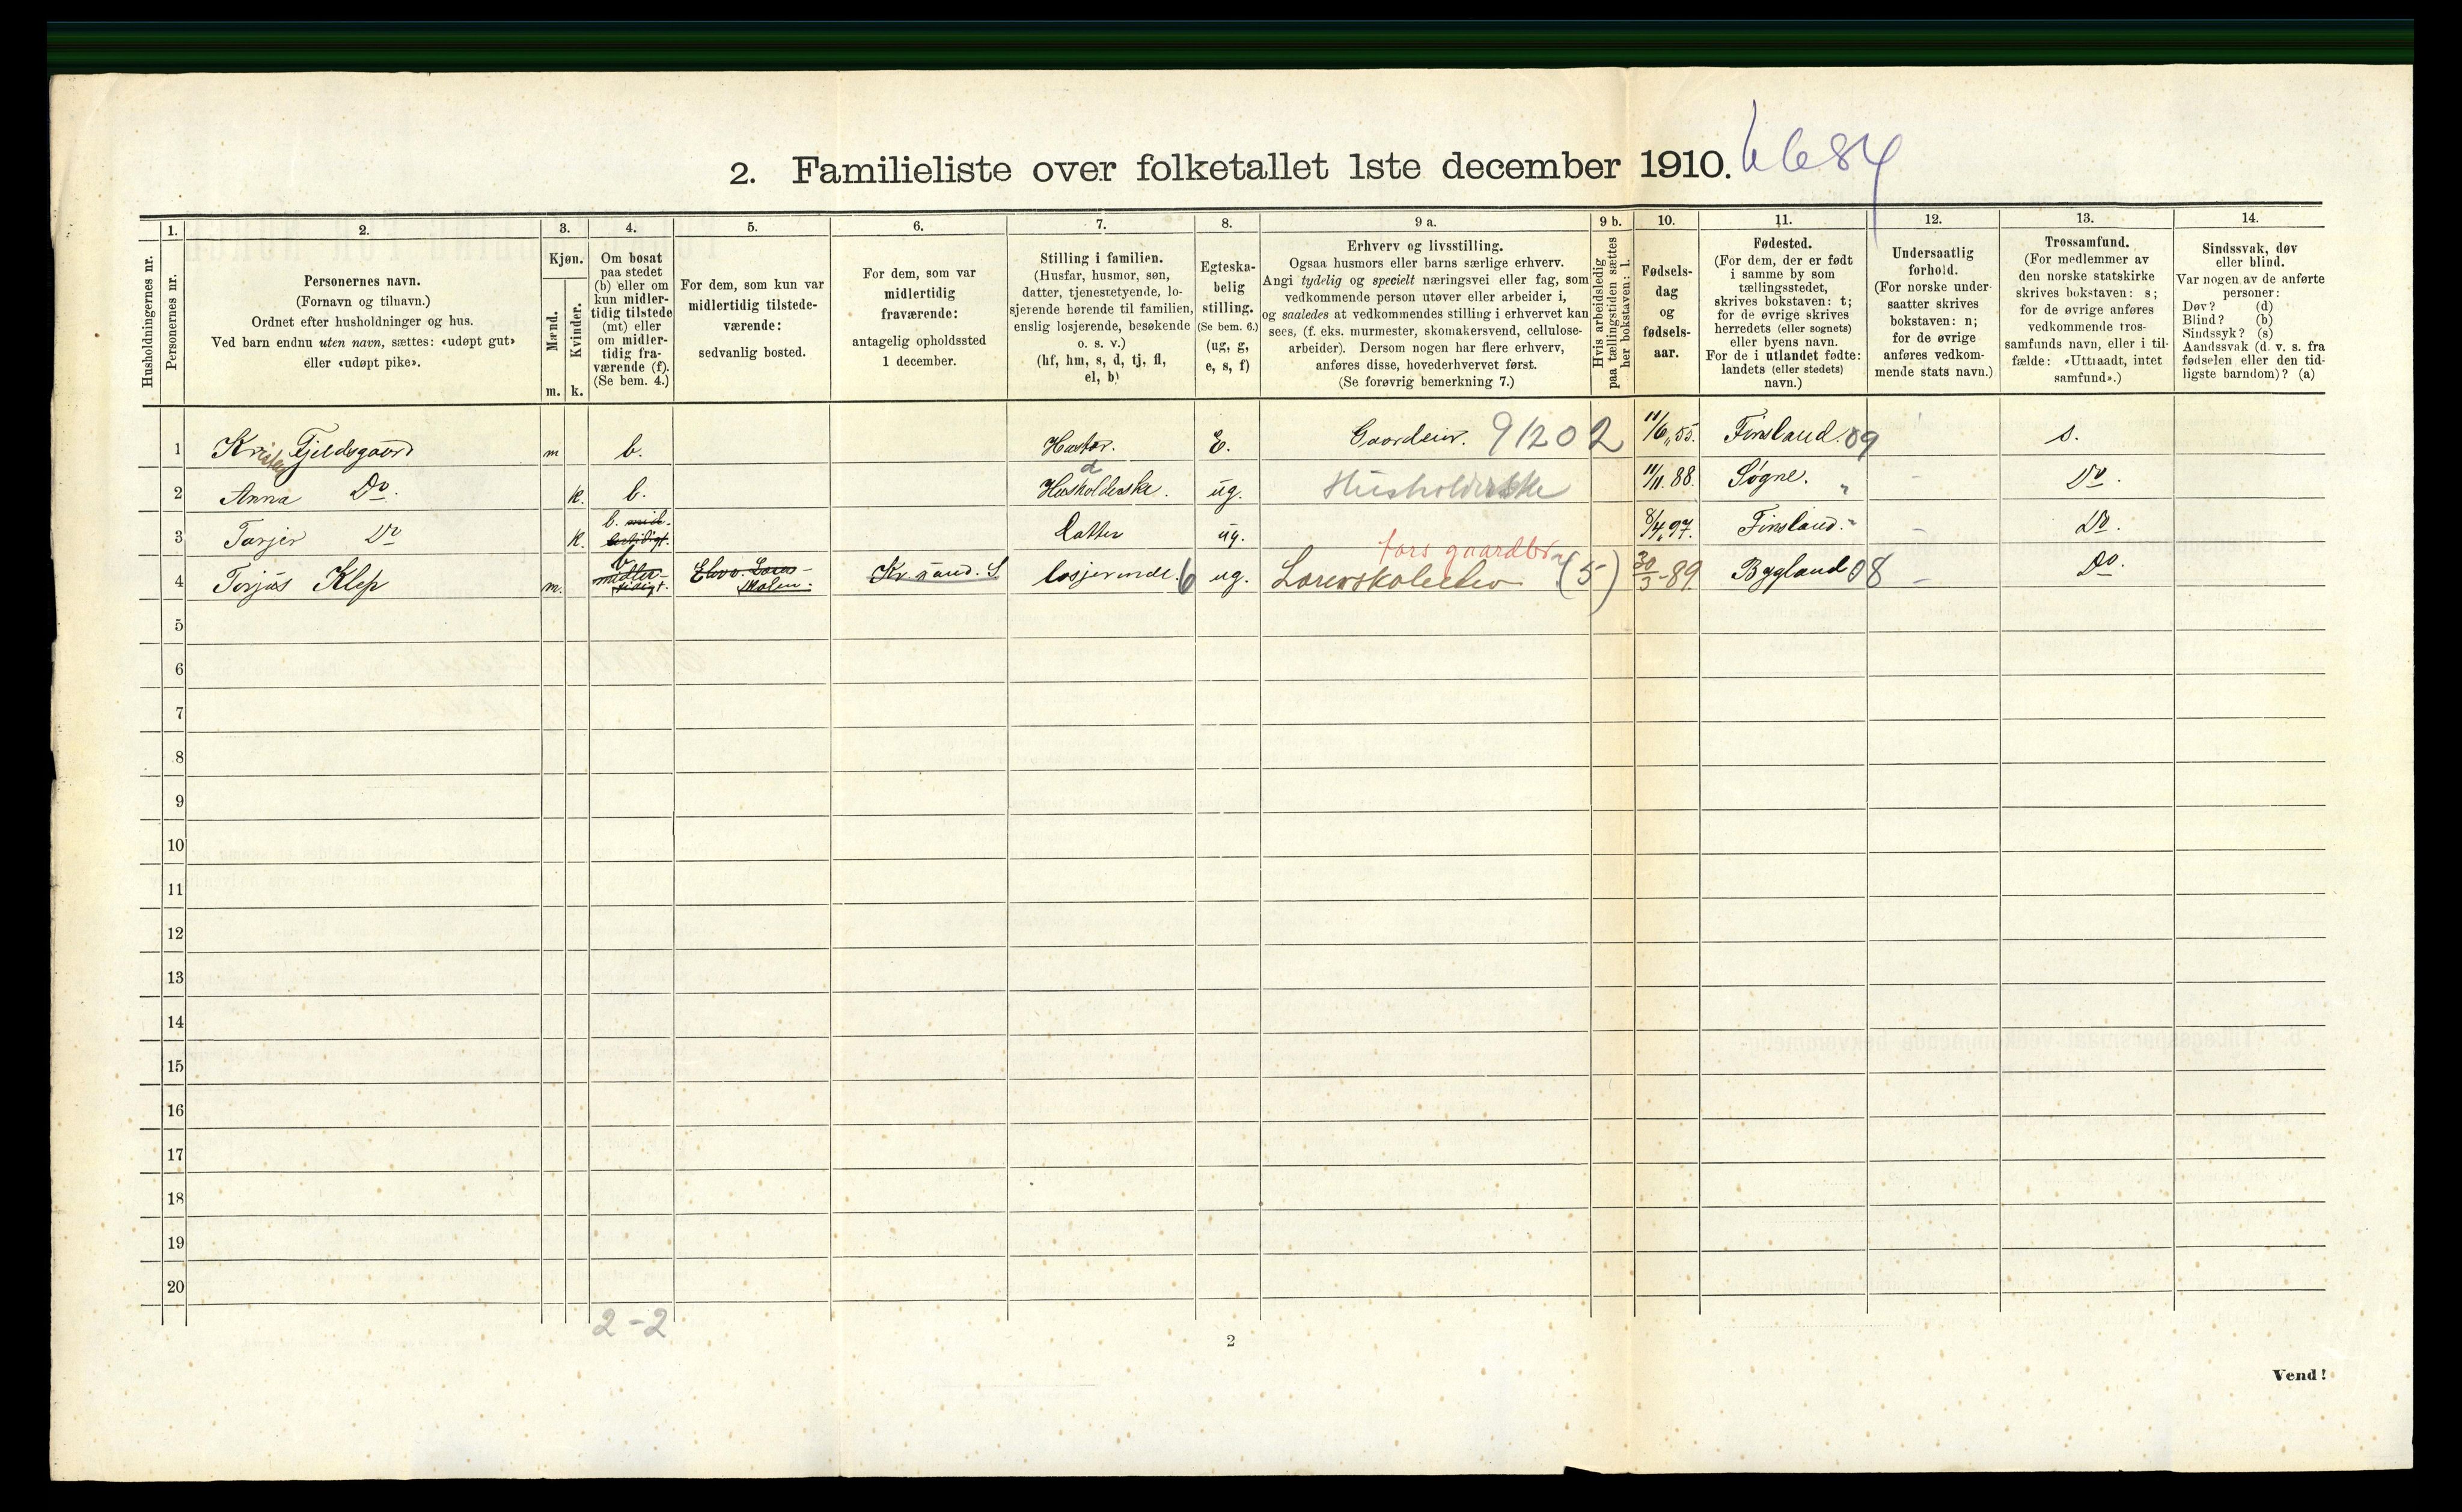 2. Familieliste over folketallet 1ste december 1910. 6684
Husholdningernes nr.
1.
Personernes nr.
2.
Personernes navn.
(Fornavn og tilnavn.)
Ordnet efter husholdninger og hus.
Ved barn endnu uten navn, sættes: «udøpt gut»
eller «udøpt pike».
3.
Kjøn.
Mænd.
Kvinder.
m. k.
4.
Om bosat
paa stedet
(b) eller om
kun midler-
tidig tilstede
(mt) eller
om midler-
tidig fra-
værende (f).
(Se bem. 4.)
5.
For dem, som kun var
midlertidig tilstede-
værende:
sedvanlig bosted.
6.
For dem, som var
midlertidig
fraværende:
antagelig opholdssted
1 december.
7.
Stilling i familien.
(Husfar, husmor, søn,
datter, tjenestetyende, lo-
sjerende hørende til familien,
enslig losjerende, besøkende
o. s. v.)
(hf, hm, s, d, tj, fl,
el, b)
8.
Egteska-
belig
stilling.
(Se bem. 6.)
(ug, g,
e, s, f)
9 a.
Erhverv og livsstilling.
Ogsaa husmors eller barns særlige erhverv.
Angi tydelig og specielt næringsvei eller fag, som
vedkommende person utøver eller arbeider i,
og saaledes at vedkommendes stilling i erhvervet kan
sees, (f. eks. murmester, skomakersvend, cellulose-
arbeider). Dersom nogen har flere erhverv,
anføres disse, hovederhvervet først.
(Se forøvrig bemerkning 7.)
9 b.
Hvis arbeidsledig
paa tællingstiden sættes
her bokstaven: l.
10.
Fødsels-
dag
og
fødsels-
aar.
11.
Fødested.
(For dem, der er født
i samme by som
tællingsstedet,
skrives bokstaven: t;
for de øvrige skrives
herredets (eller sognets)
eller byens navn.
For de i utlandet fødte:
landets (eller stedets)
navn.)
12.
Undersaatlig
forhold.
(For norske under-
saatter skrives
bokstaven: n;
for de øvrige
anføres vedkom-
mende stats navn.)
13.
Trossamfund.
(For medlemmer av
den norske statskirke
skrives bokstaven: s;
for de øvrige anføres
vedkommende tros-
samfunds navn, eller i til-
fælde: «Uttraadt, intet
samfund».)
14.
Sindssvak, døv
eller blind.
Var nogen av de anførte
personer:
Døv? (d)
Blind? (b)
Sindssyk? (s)
Aandssvak (d. v. s. fra
fødselen eller den tid-
ligste barndom)? (a)
1 Kristen Fjeldsgaard m b. Husfar. E. Gaardeier. 91202 11/6 55. Finsland. 09 s.
2 Anna Do. k. b. d Husholderske. ug. Husholderske 11/11. 88. Søgne. " - Do.
3 Tarjer Do k. b. midlertidigt. Datter ug. 8/4 97. Finsland. " - Do.
4 Torjus Klep m. b midlertidigt. Elev v. Lærerskolen. Kr.sand. S losjerende. 6 ug. fars gaardbr Lærerskoleelev (5) 30/3-89. Bygland 08 - Do.
5
6
7
8
9
10
11
12
13
14
15
16
17
18
19
20
2-2
2
Vend!